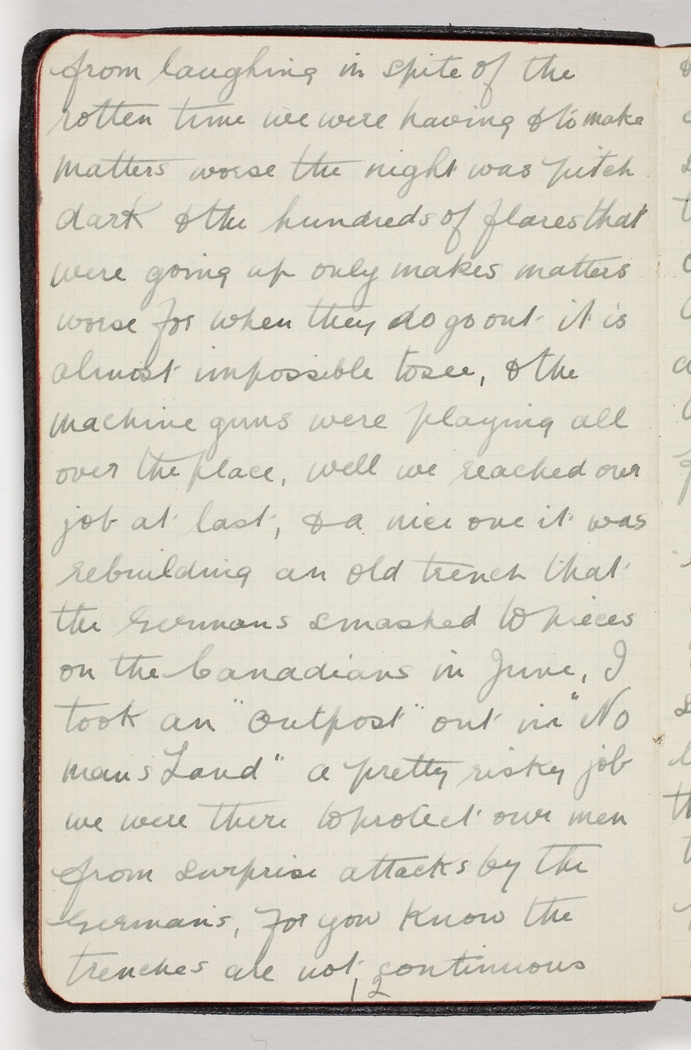 from laughing in spite of the
rotten time we were having & to make
matters worse the night was pitch
dark & the hundreds of flares that
were going up only makes matters
worse for when they do go out it is
almost impossible to see, & the
machine guns were playing all
over the place, well we reached our
job at last, & a nice one it was
rebuilding an old trench that
the Germans smashed to pieces
on the Canadians in June, I
took an "outpost" out in "No
mans Land" a pretty risky job
we were there to protect our men
from surprise attacks by the
Germans, for you know the
trenches are not continuous
12